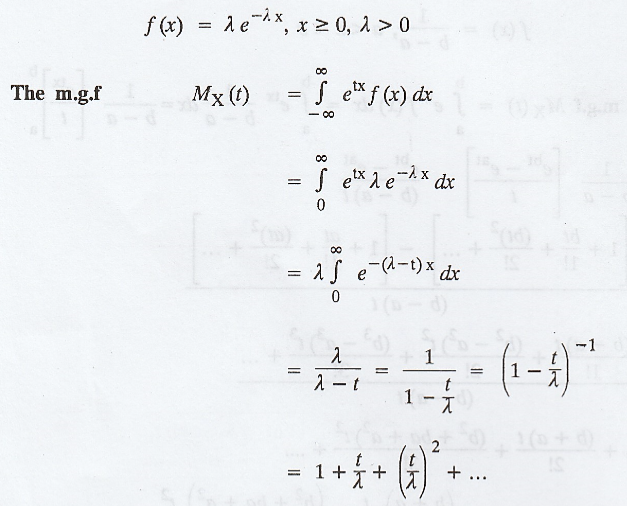 f (x) = λ e^{−λ x}, x ≥ 0, λ > 0
The m.g.f M_X (t) = ∫_{−∞}^{∞} e^{tx} f (x) dx
= ∫_{0}^{∞} e^{tx} λ e^{−λ x} dx
= λ ∫_{0}^{∞} e^{−(λ−t) x} dx
= λ / (λ − t) = 1 / (1 − t/λ) = (1 − t/λ)^{−1}
= 1 + t/λ + (t/λ)^2 + ...